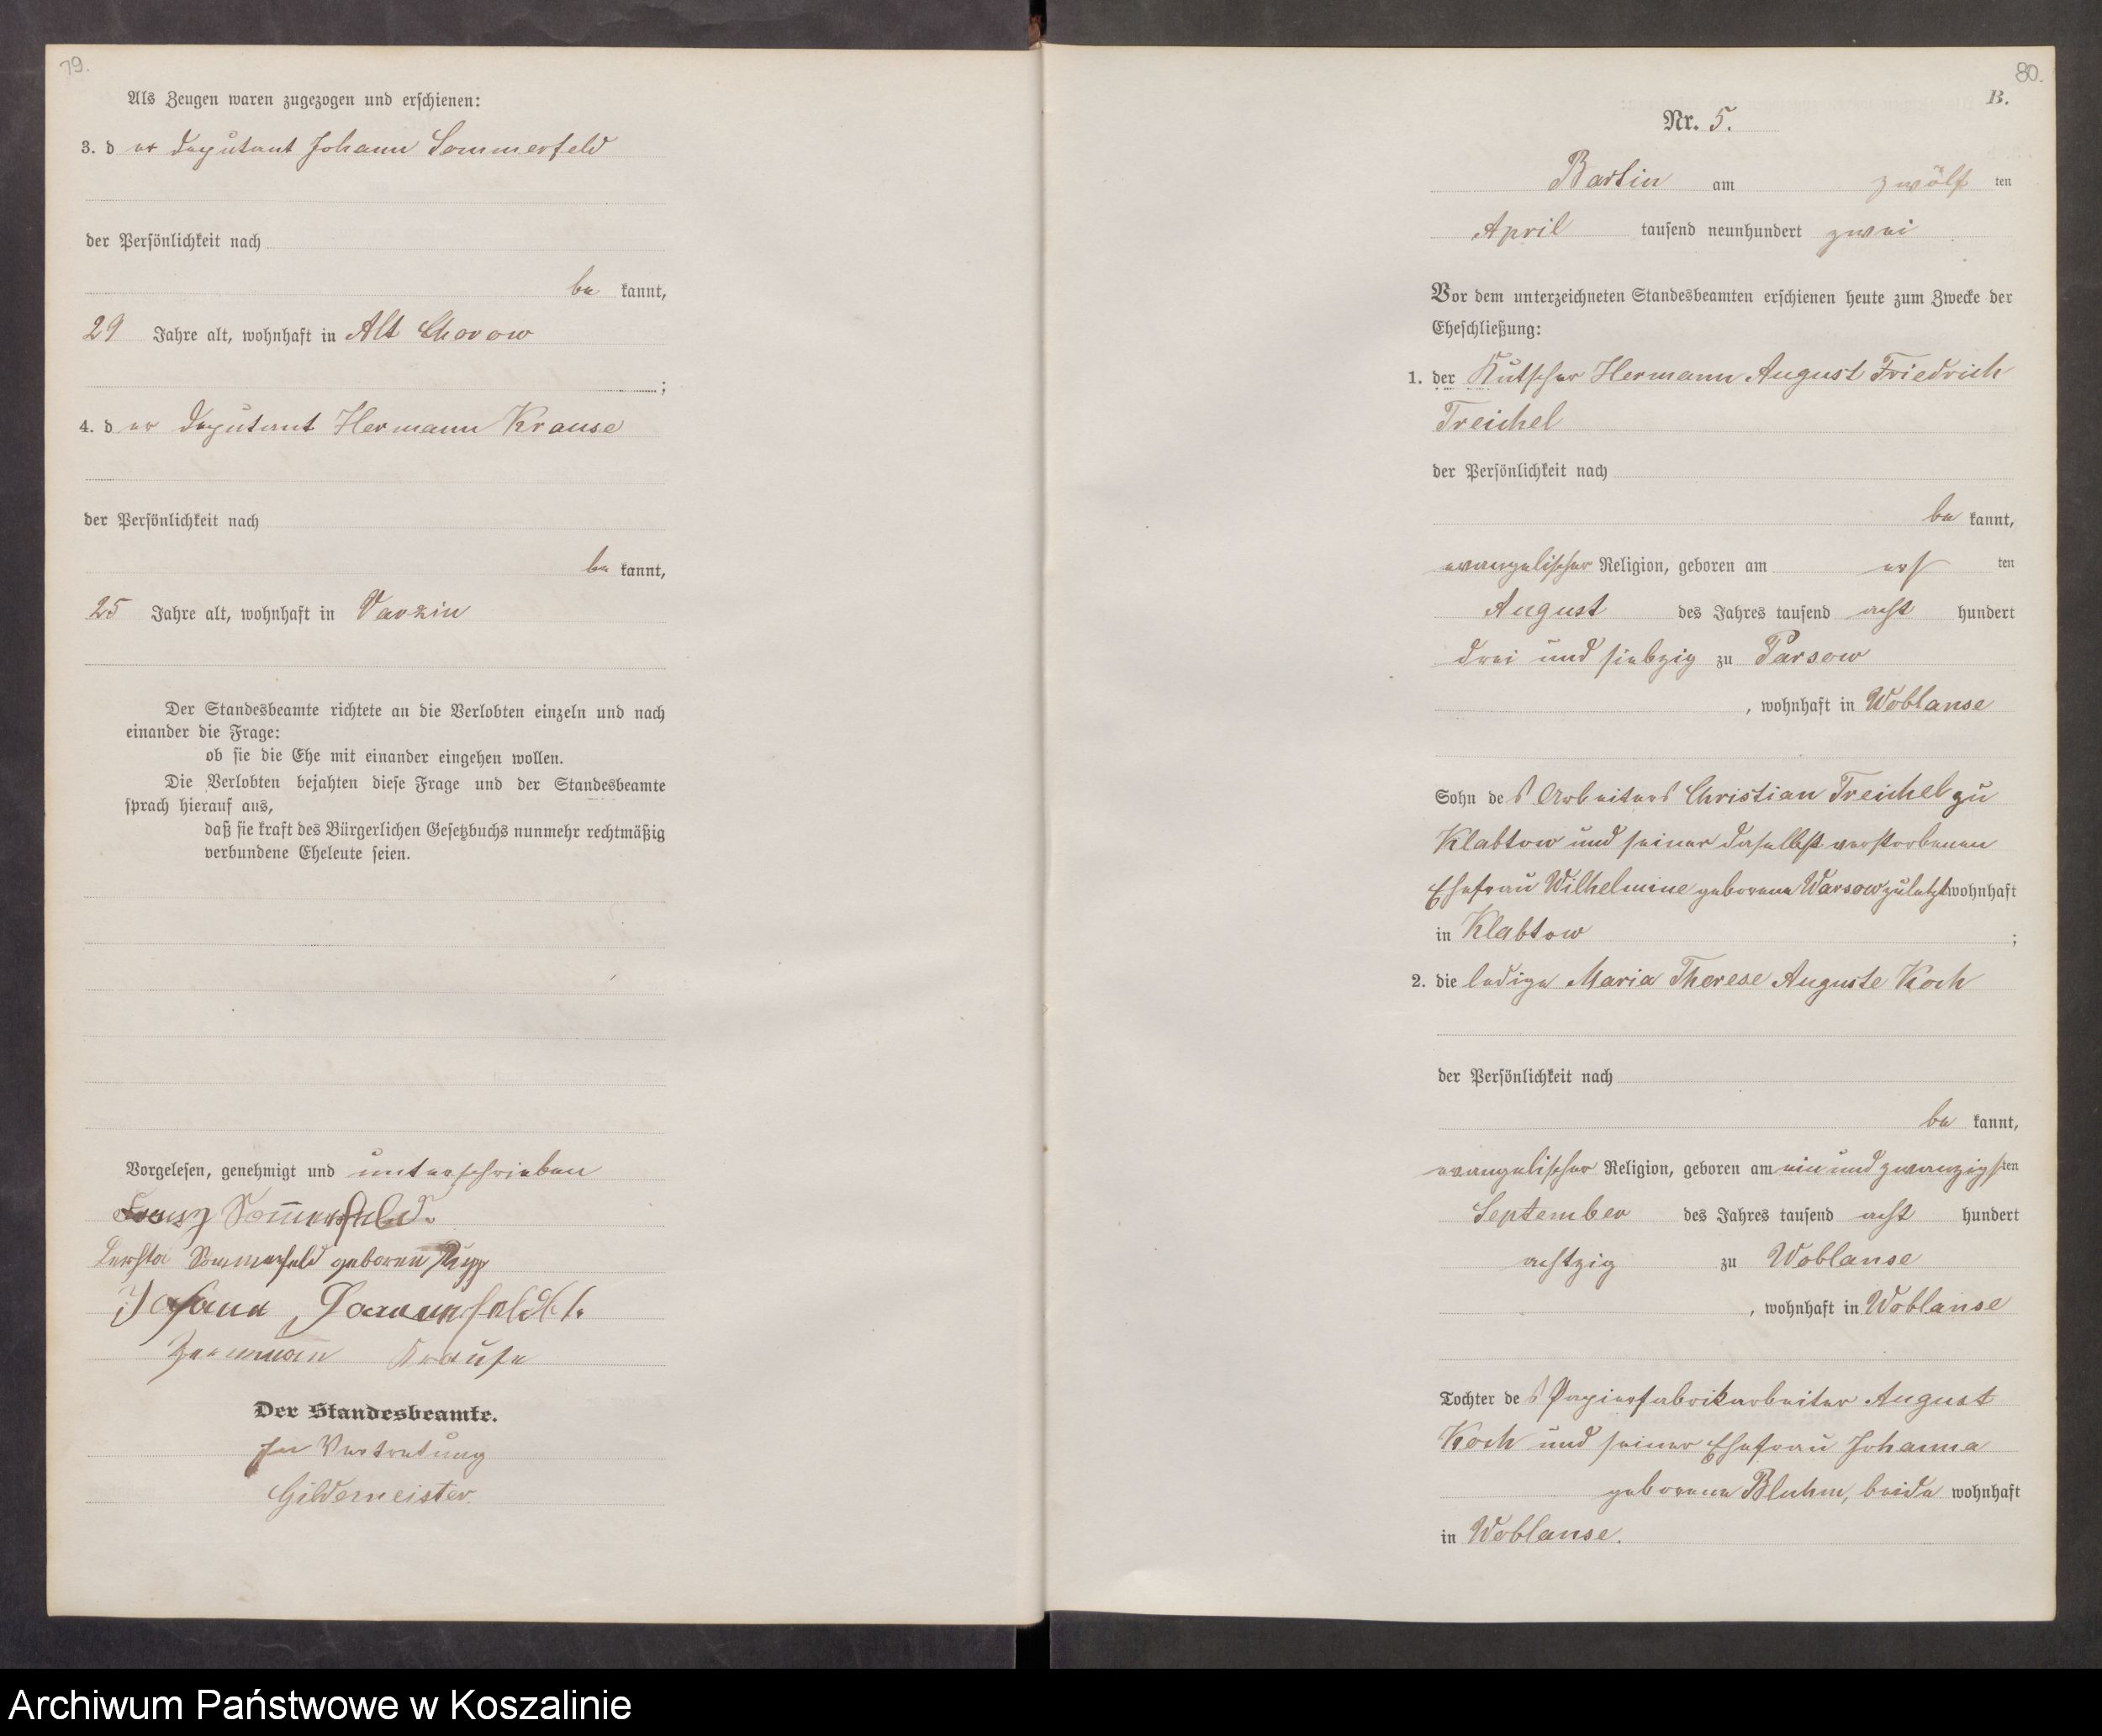 79.
Als Zeugen waren zugezogen und erschienen:
3. der Deputant Johann Sommerfeld
der Persönlichkeit nach
be kannt,
29 Jahre alt, wohnhaft in Alt Chorow
;
4. der Deputant Hermann Krause
der Persönlichkeit nach
be kannt,
25 Jahre alt, wohnhaft in Varzin
Der Standesbeamte richtete an die Verlobten einzeln und nach
einander die Frage:
ob sie die Ehe mit einander eingehen wollen.
Die Verlobten bejahten diese Frage und der Standesbeamte
sprach hierauf aus,
daß sie kraft des Bürgerlichen Gesetzbuchs nunmehr rechtmäßig
verbundene Eheleute seien.
Vorgelesen, genehmigt und unterschrieben
Sommerfeld.
Sommerfeld geboren
Johann Sommerfeld
Hermann Krause
Der Standesbeamte.
In Vertretung
Gildemeister
80.
B.
Nr. 5.
Bartin am zwölf ten
April tausend neunhundert zwei
Vor dem unterzeichneten Standesbeamten erschienen heute zum Zwecke der
Eheschließung:
1. der Kutscher Hermann August Friedrich
Treichel
der Persönlichkeit nach
be kannt,
evangelischer Religion, geboren am ers ten
August des Jahres tausend acht hundert
drei und siebzig zu Parsow
, wohnhaft in Woblanse
Sohn des Arbeiters Christian Treichel zu
Klabtow und seiner daselbst verstorbenen
Ehefrau Wilhelmine geborene Warsow zuletzt wohnhaft
in Klabtow ;
2. die ledige Maria Therese Auguste Koch
der Persönlichkeit nach
be kannt,
evangelischer Religion, geboren am ein und zwanzigsten
September des Jahres tausend acht hundert
achtzig zu Woblanse
, wohnhaft in Woblanse
Tochter des Papierfabrikarbeiter August
Koch und seiner Ehefrau Johanna
geborene Bluhm, beide wohnhaft
in Woblanse.
Archiwum Państwowe w Koszalinie